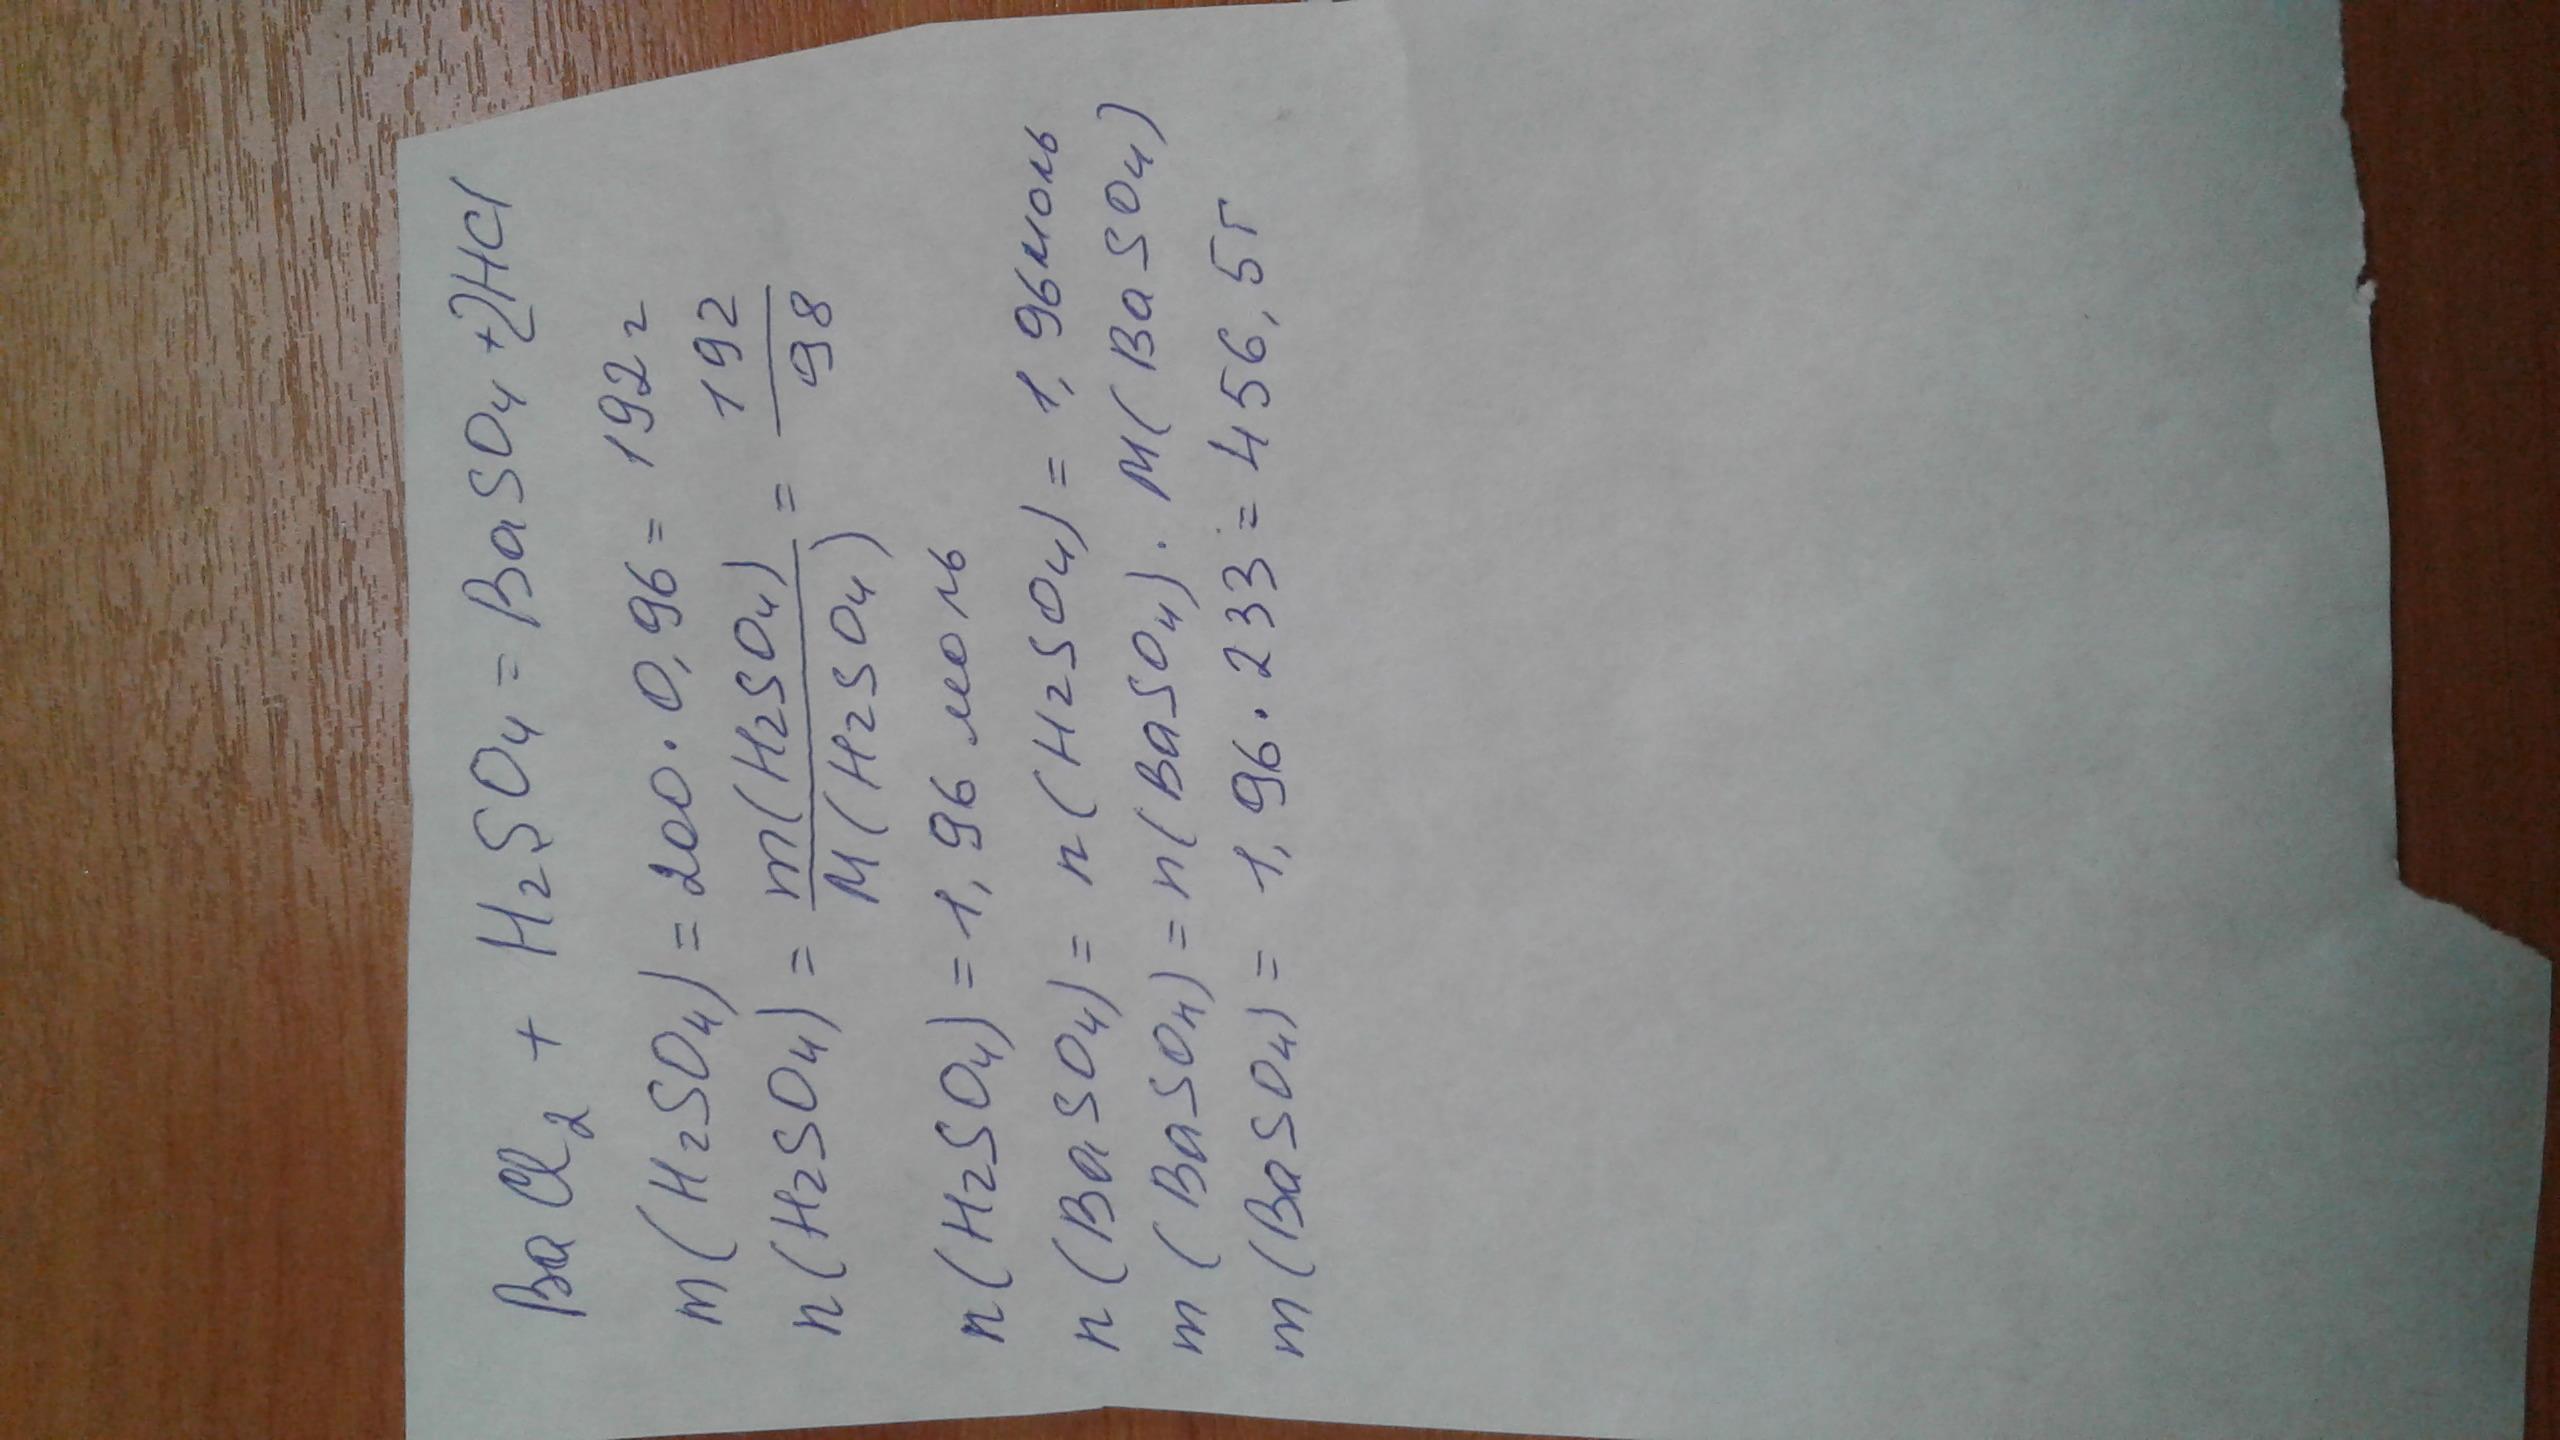 BaCl₂ + H₂SO₄ = BaSO₄ + 2HCl
m(H₂SO₄) = 200 · 0,96 = 192 г
n(H₂SO₄) = m(H₂SO₄) / M(H₂SO₄) = 192 / 98
n(H₂SO₄) = 1,96 моль
n(BaSO₄) = n(H₂SO₄) = 1,96 моль
m(BaSO₄) = n(BaSO₄) · M(BaSO₄)
m(BaSO₄) = 1,96 · 233 = 456,5 г